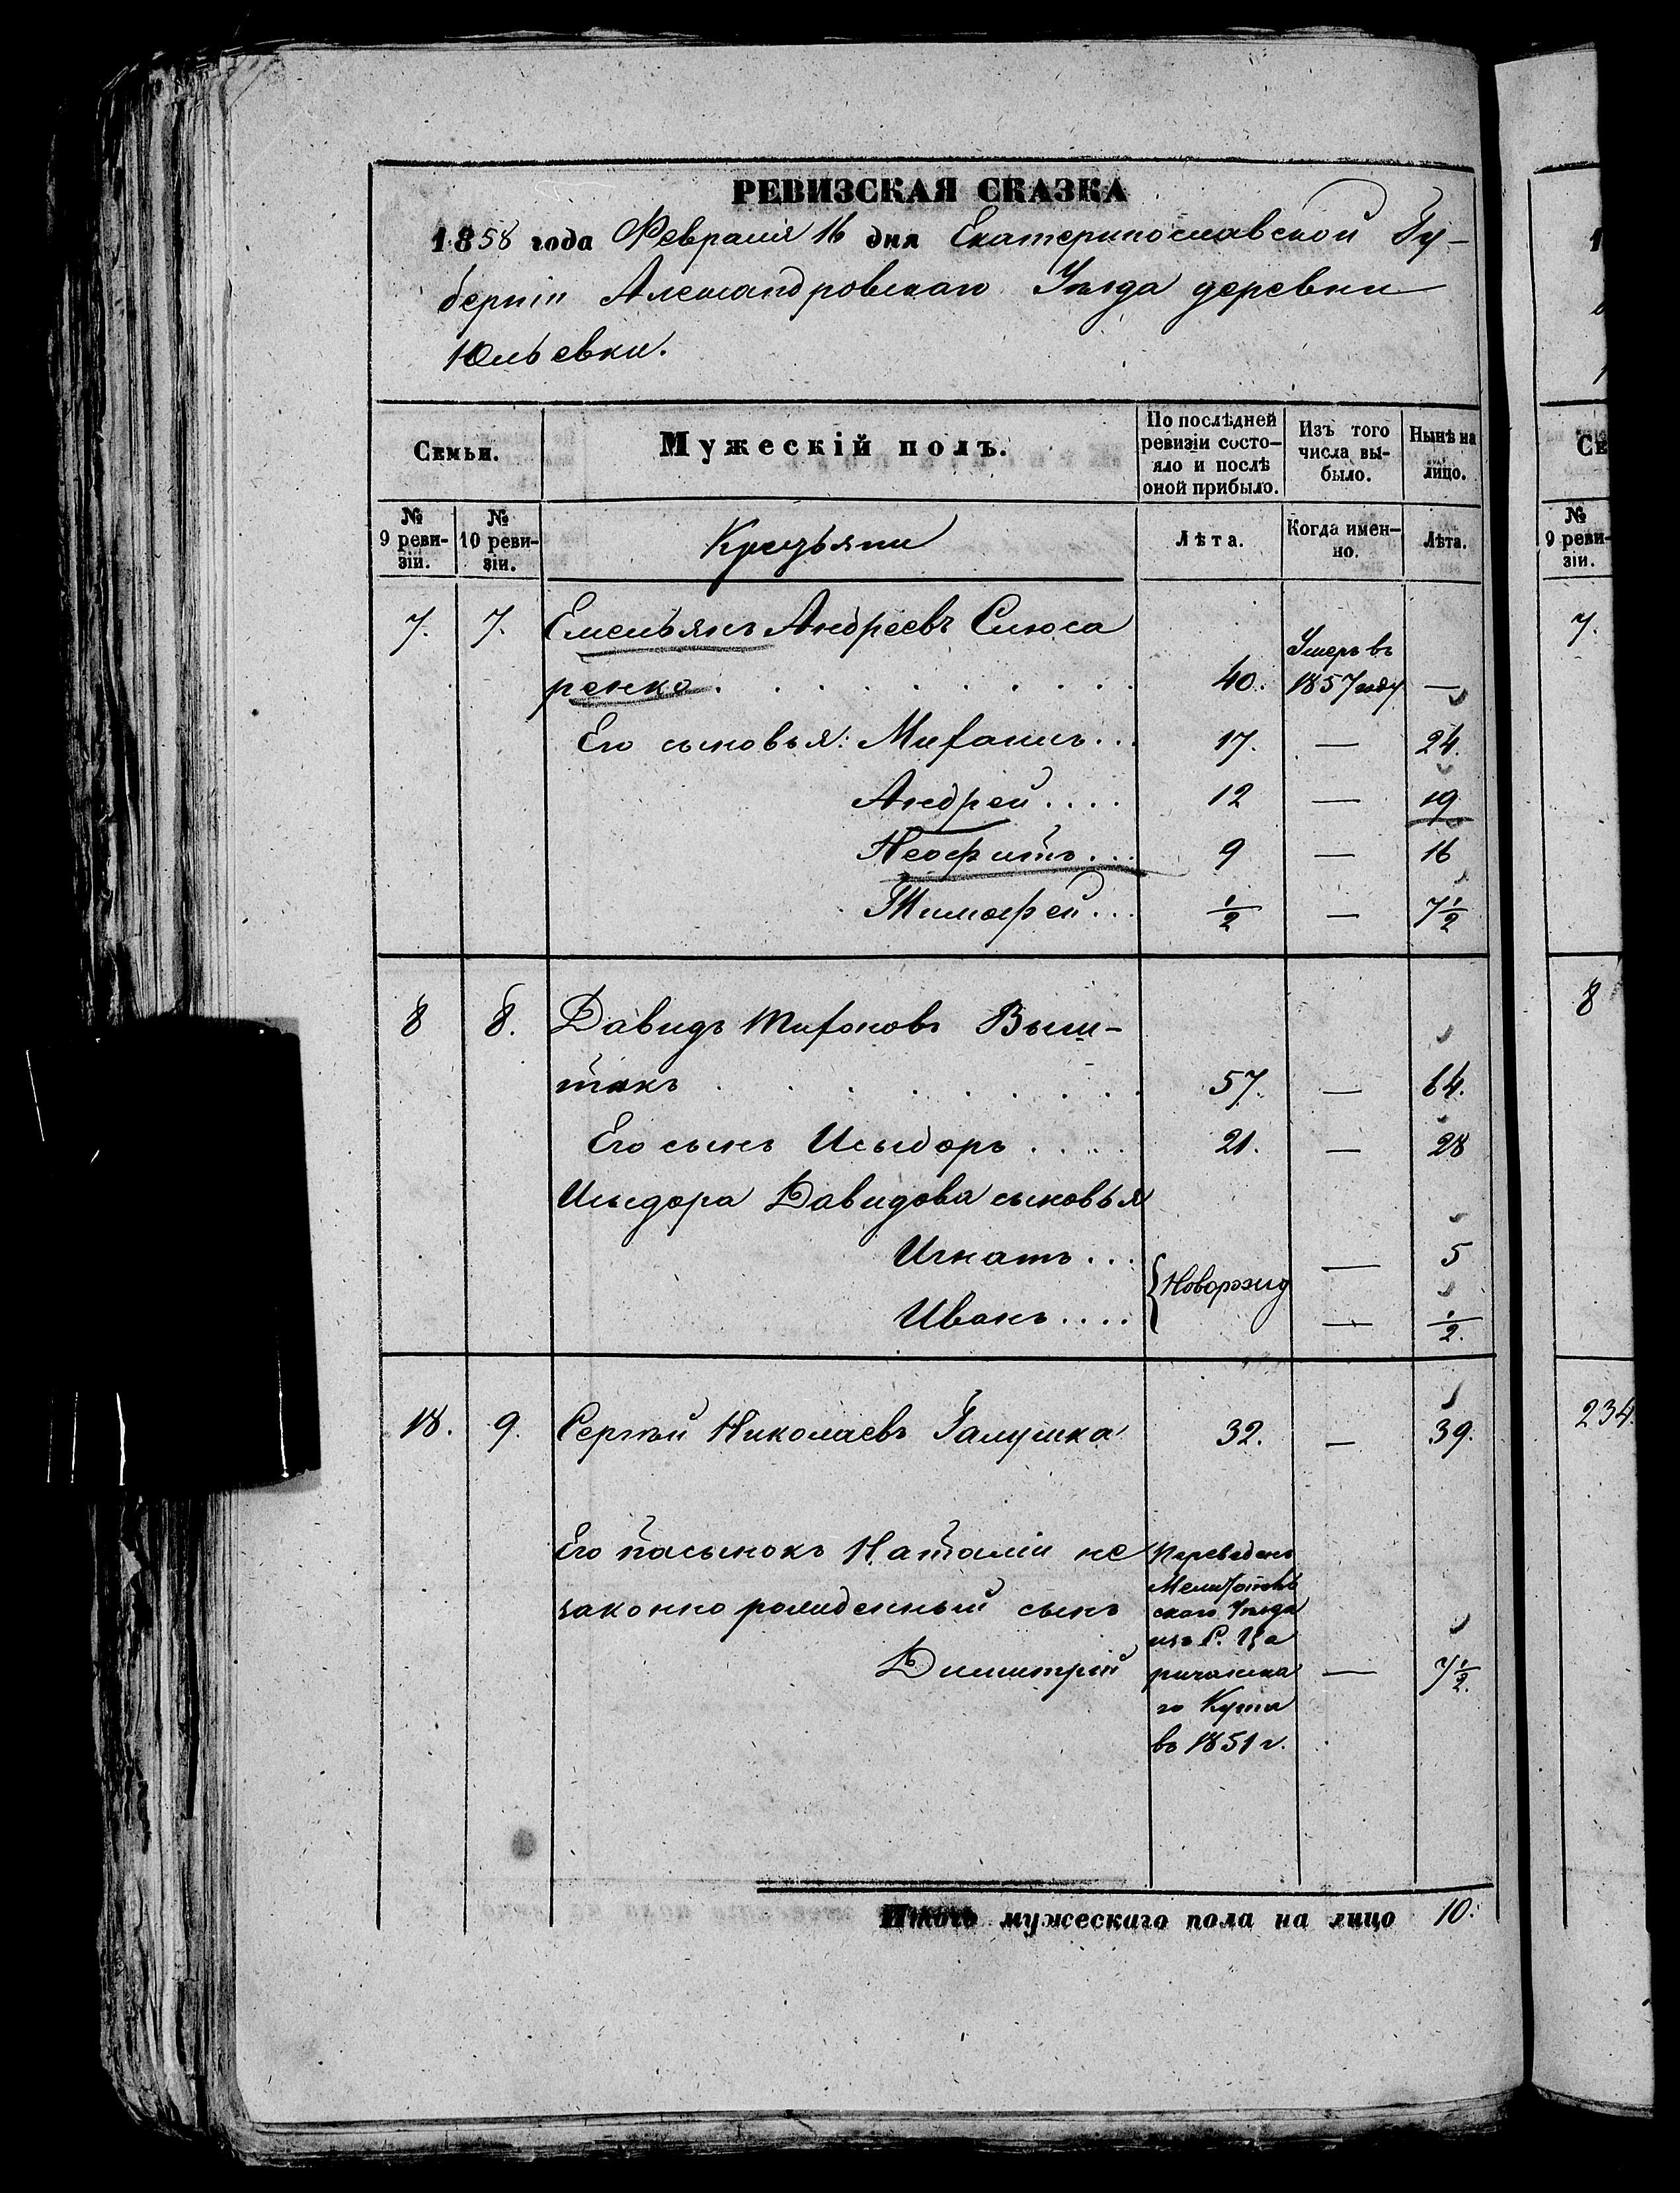 РЕВИЗСКАЯ СКАЗКА
1858 года Февраля 16 дня Екатеринославской Гу-
берніи Александровскаго Уѣзда деревни
Юльевки.
Семьи.
Мужескій полъ.
По послѣдней ревизіи состо-
яло и послѣ оной прибыло.
Изъ того числа вы-
было.
Нынѣ на лицо.
№ 9 реви-
зіи.
№ 10 реви-
зіи.
Крестьяни
Лѣта.
Когда имен-
но.
Лѣта.
7. 7. Емельянъ Андреевъ Слюса
ренко . . . . . . . . . . 40. Умеръ въ 1857 году —
Его сыновья: Митафанъ... 17. — 24.
Андрей.... 12 — 19
Неофитъ... 9 — 16
Тимофей... ½ — 7½
8 8. Давидъ
такъ . . . . . . . 57. — 64.
Его сынъ Исыдоръ . . . . 21. — 28
Исыдора Давидова сыновья
Игнатъ... {Новорожд — 5
Иванъ.... — ½.
18. 9. Сергѣй Николаевъ Галушка 32. — 39.
Его пасынокъ Наталіи не
законно рожденный сынъ
Димитрій — 7½.
Переведенъ
Мелитополь
скаго Уѣзда
изъ С. Ца
ричанска
го Кута
въ 1851 г.
Итого мужескаго пола на лицо 10.
9 реви-
зіи.
7.
8
234.